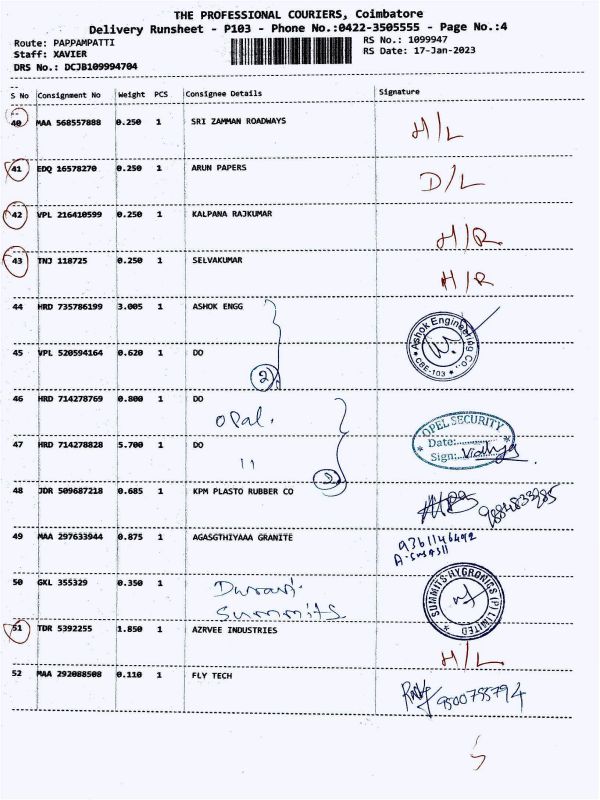 THE PROFESSIONAL COURIERS, Coimbatore
Delivery Runsheet - P103 - Phone No.:0422-3505555 - Page No.:4
Route: PAPPAMPATTI RS No.: 1099947
Staff: XAVIER RS Date: 17-Jan-2023
DRS No.: DCJB109994704
S No Consignment No Weight PCS Consignee Details Signature
40 MAA 568557888 0.250 1 SRI ZAMMAN ROADWAYS H/L
41 EDQ 16578270 0.250 1 ARUN PAPERS D/L
42 VPL 216410599 0.250 1 KALPANA RAJKUMAR H/R
43 TNJ 118725 0.250 1 SELVAKUMAR H/R
44 HRD 735786199 3.005 1 ASHOK ENGG
Ashok Engineering Co., CBE-103
45 VPL 520594164 0.620 1 DO
2
46 HRD 714278769 0.800 1 DO
Opal.
OPEL SECURITY
Date:
47 HRD 714278828 5.700 1 DO
Sign:
11
48 JDR 509687218 0.685 1 KPM PLASTO RUBBER CO
49 MAA 297633944 0.875 1 AGASGTHIYAAA GRANITE
50 GKL 355329 0.350 1
Summits
SUMMITS HYGRONICS (P) LIMITED
51 TDR 5392255 1.850 1 AZRVEE INDUSTRIES H/L
52 MAA 292088508 0.110 1 FLY TECH
9500755794